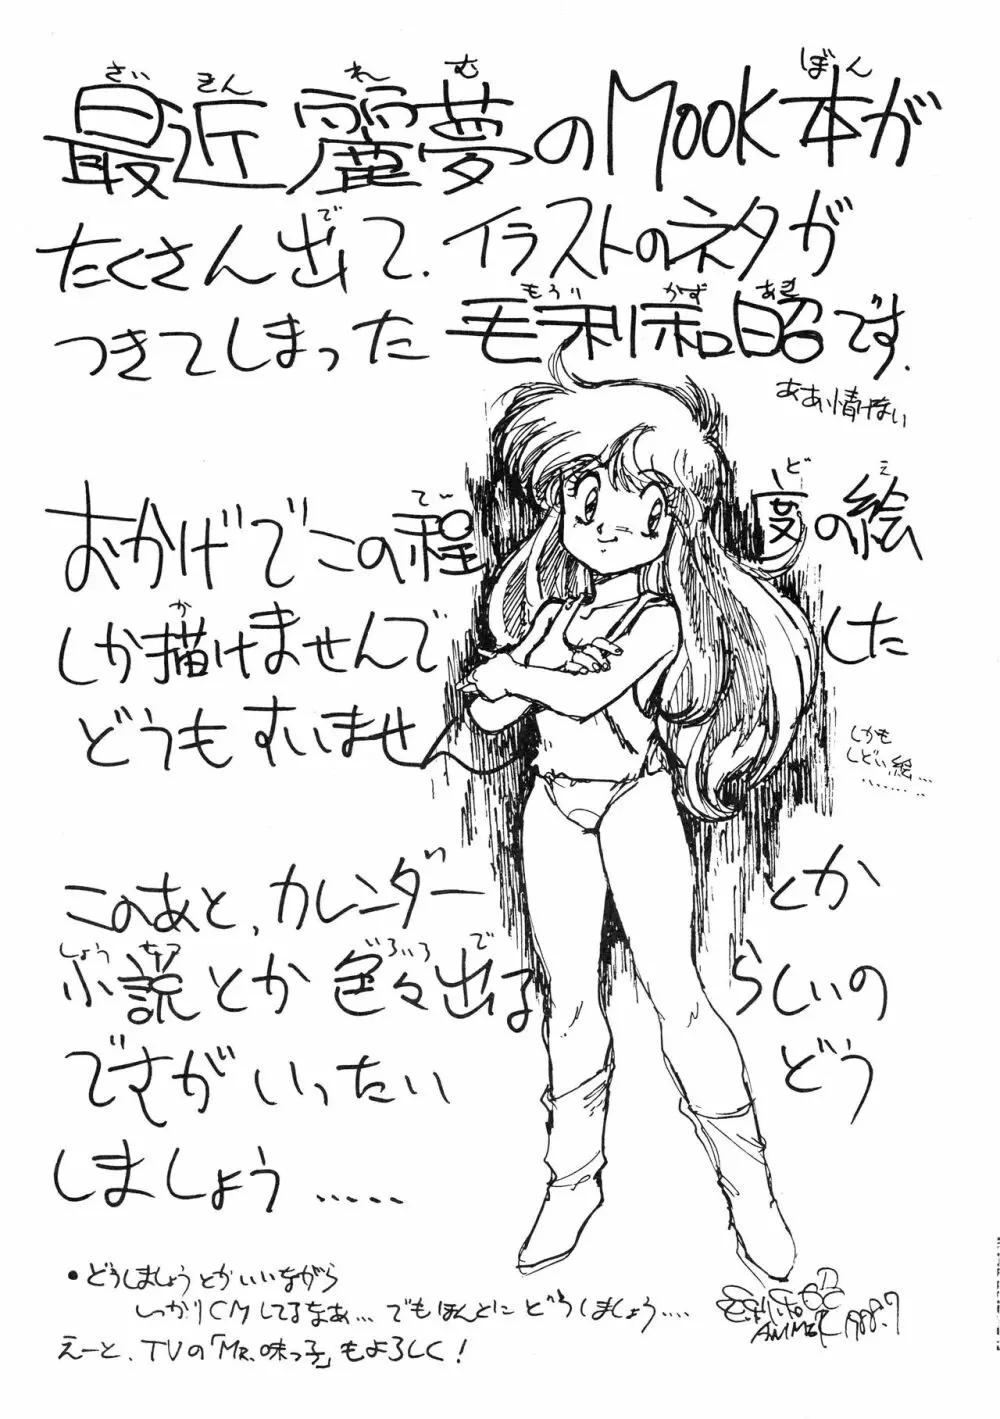 最近麗夢のMOOK本が
たくさん出て、イラストのネタが
つきてしまった 毛利和昭です.
ああ、情けない
おかげでこの程度の絵
しか描けませんでした
どうもすいませ
しかも
しどい絵…
このあと、カレンダーとか
小説とか色々出るらしいの
ですがいったいどう
しましょう.....
・どうしましょうとかいいながら
しっかりCMしてるなあ… でもほんとにどうしましょう....
えーと、TVの「MR.味っ子」もよろしく!
毛利和昭
ANIMER 1988.7